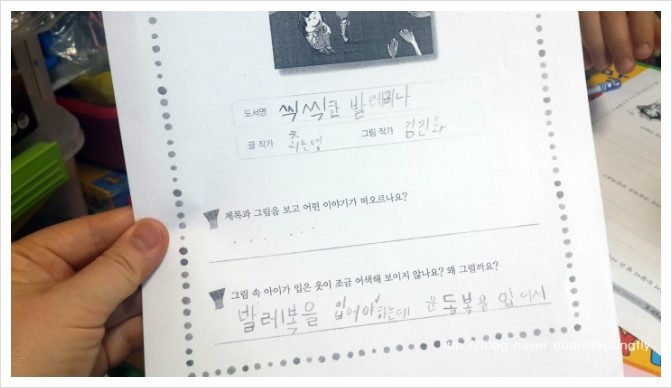 도서명 씩씩한 발레리나
글 작가 최은영 그림 작가 김진화
제목과 그림을 보고 어떤 이야기가 떠오르나요?
. . . . . .
그림 속 아이가 입은 옷이 조금 어색해 보이지 않나요? 왜 그럴까요?
발레복을 입어야하는데 운동복을 입어서
http://blog.naver.com/